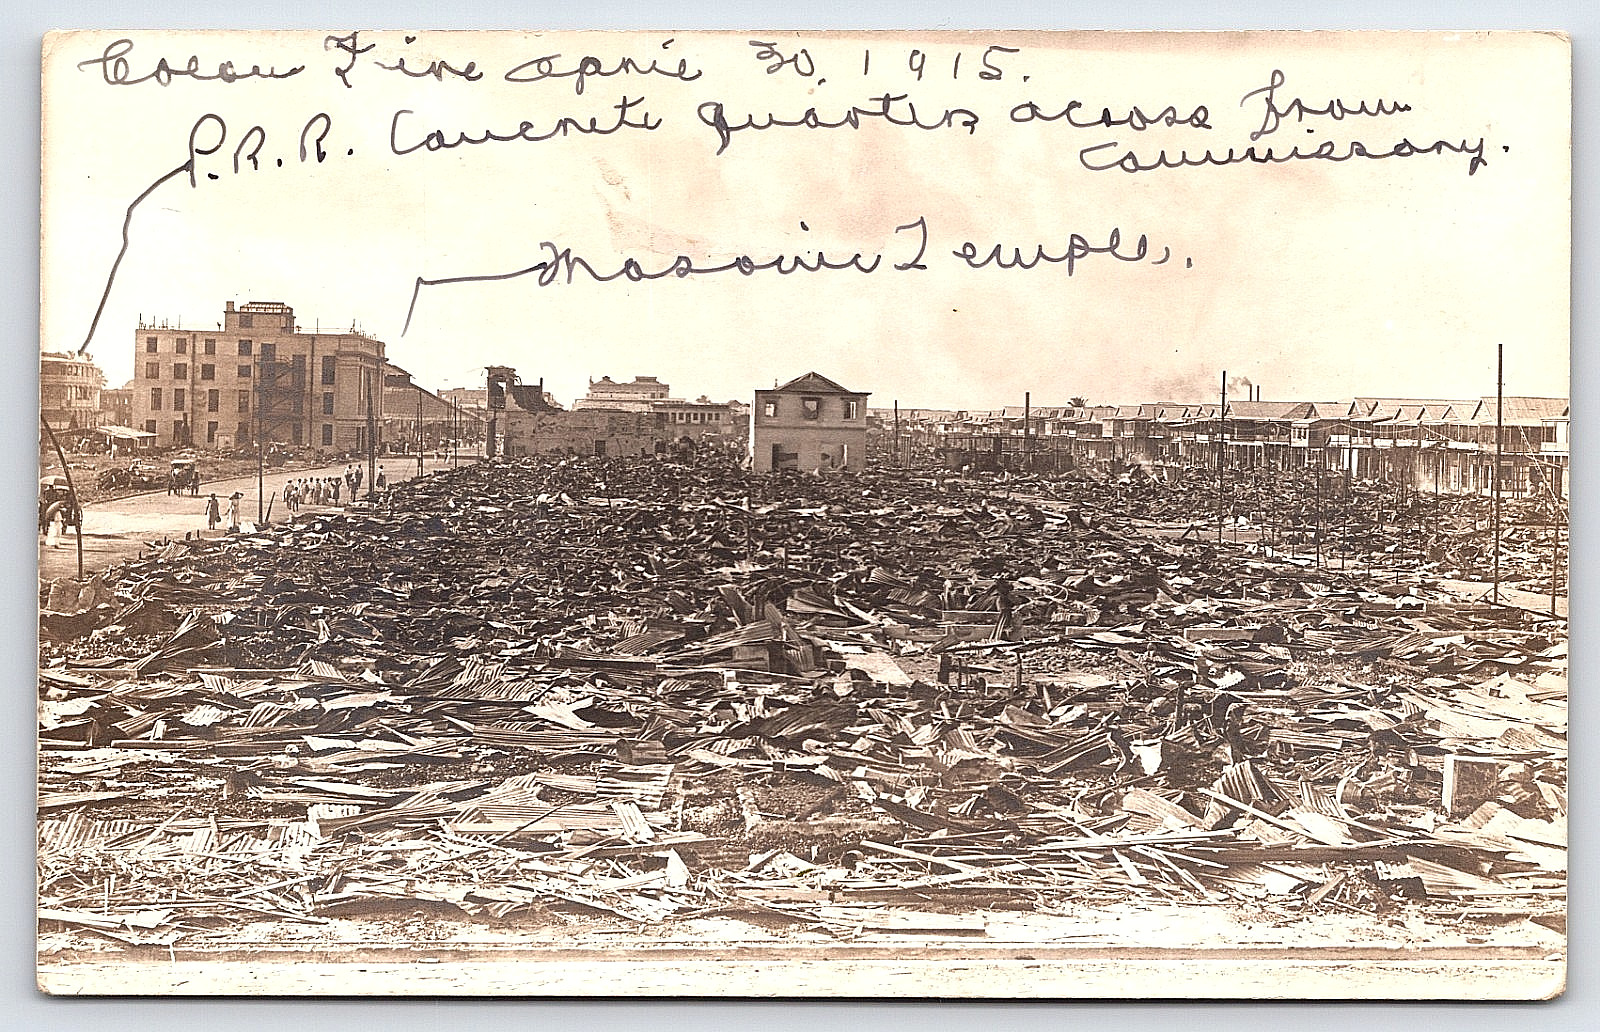 Colon Fire April 30, 1915.
P.R.R. Concrete quarters across from
commissary.
Masonic Temple.